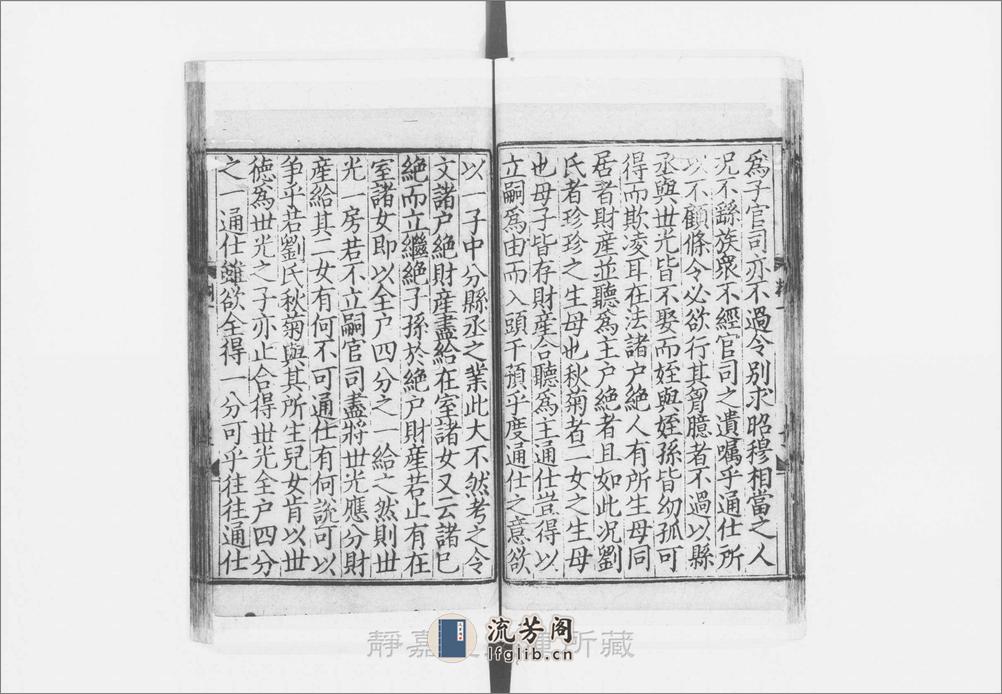 爲子官司亦不過令别求昭穆相當之人
况不繇族衆不經官司之遺囑乎通仕所
以不顧條令必欲行其胷臆者不過以縣
丞與丗光皆不娶而姪與姪孫皆幼孤可
得而欺凌耳在法諸户絶人有所生母同
居者財産並聽爲主户絶者且如此况劉
氏者珍珍之生母也秋菊者二女之生母
也母子皆存財産合聽爲主通仕豈得以
立嗣爲由而入頭干預乎度通仕之意欲
以一子中分縣丞之業此大不然考之令
文諸户絶財産盡給在室諸女又云諸已
絶而立繼絶子孫於絶户財産若止有在
室諸女即以全户四分之一給之然則丗
光一房若不立嗣官司盡將丗光應分財
産給其二女有何不可通仕有何說可以
争乎若劉氏秋菊與其所生兒女肯以丗
徳爲丗光之子亦止合得丗光全户四分
之一通仕雖欲全得一分可乎往往通仕
靜嘉 所藏
流芳阁
lfglib.cn